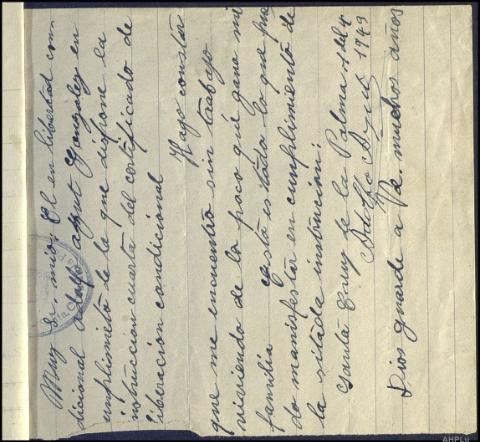 Muy Sr. mio: El en libertad con
dicional Adolfo Azgut Gonzalez en
umplimieto de lo que dispone la
intruccion cuarta del certificado de
liberacion condicional
Hago constar
que me encuentro sin trabajo
viviendo de lo poco que gana mi
familia esta es todo lo que pue
do manifestar en cumplimiento de
la sitada instrucion:
Santa Cruz de la Palma 1 del 4
1943
Adolfo
Dios guarde a Vd. muchos años
AHPLP